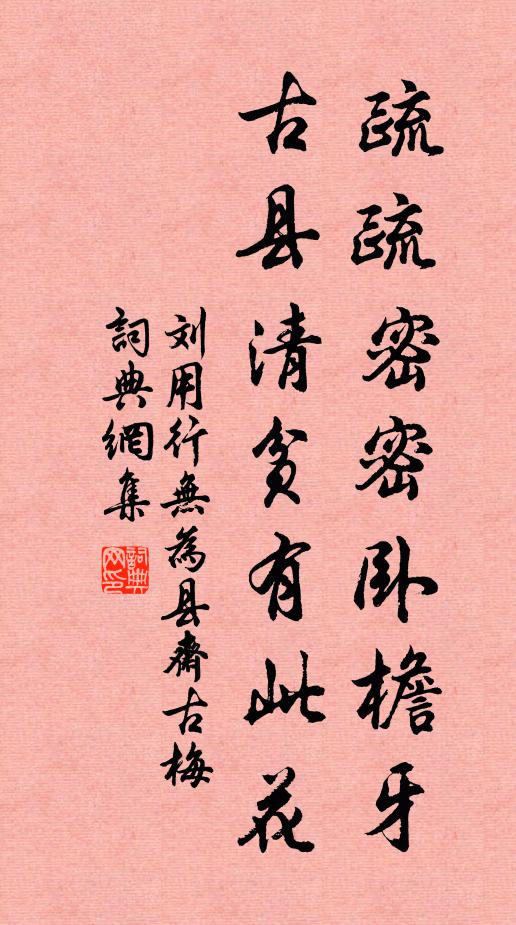 疏疏密密卧檐牙
古县清贫有此花
刘用行無為县齋古梅
詞典網集
詞典網印